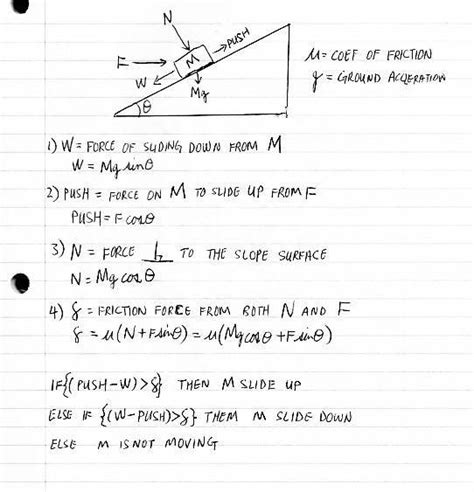 N
PUSH
F
M
W
Mg
θ
μ = COEF OF FRICTION
g = GROUND ACCLERATION
1) W = FORCE OF SLIDING DOWN FROM M
W = Mg sinθ
2) PUSH = FORCE ON M TO SLIDE UP FROM F
PUSH = F cosθ
3) N = FORCE ⊥ TO THE SLOPE SURFACE
N = Mg cosθ
4) f = FRICTION FORCE FROM BOTH N AND F
f = μ(N+Fsinθ) = μ(Mgcosθ +Fsinθ)
IF{(PUSH-W)>f} THEN M SLIDE UP
ELSE IF {(W-PUSH)>f} THEM M SLIDE DOWN
ELSE M IS NOT MOVING